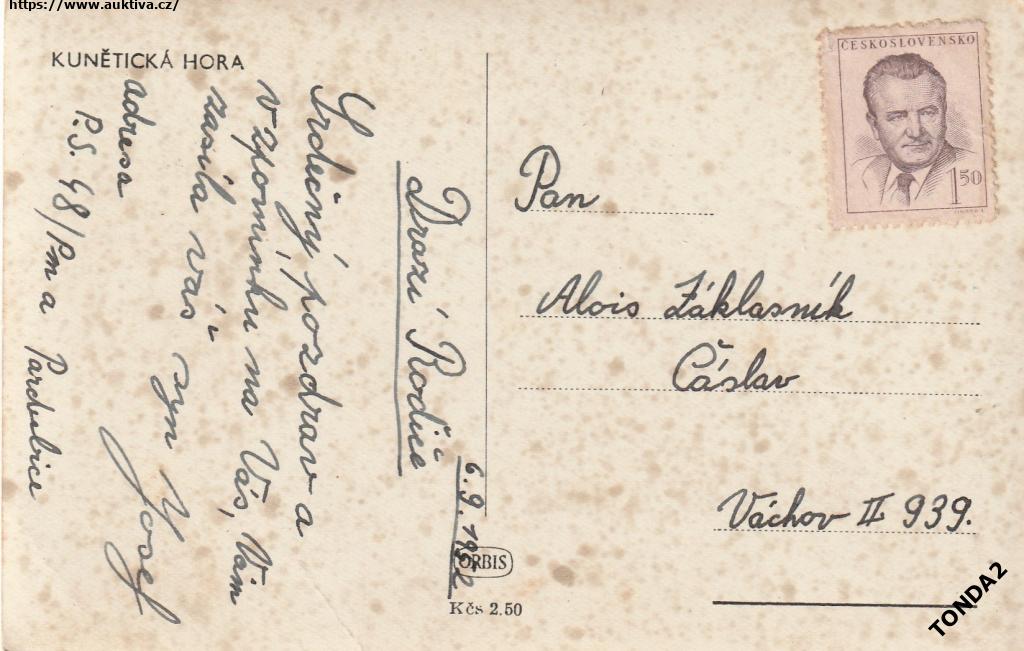 https://www.auktiva.cz/
KUNĚTICKÁ HORA
6.9.1952
Drazí Rodiče
Srdečný pozdrav a
vzpomínku na Vás, Vám
zasílá váš
syn Josef
adresa
P.S. 48/Pm a Pardubice
ČESKOSLOVENSKO
1 50
Pan
Alois Záklasník
Čáslav
Váchov II 939.
ORBIS
Kčs 2.50
TONDA2